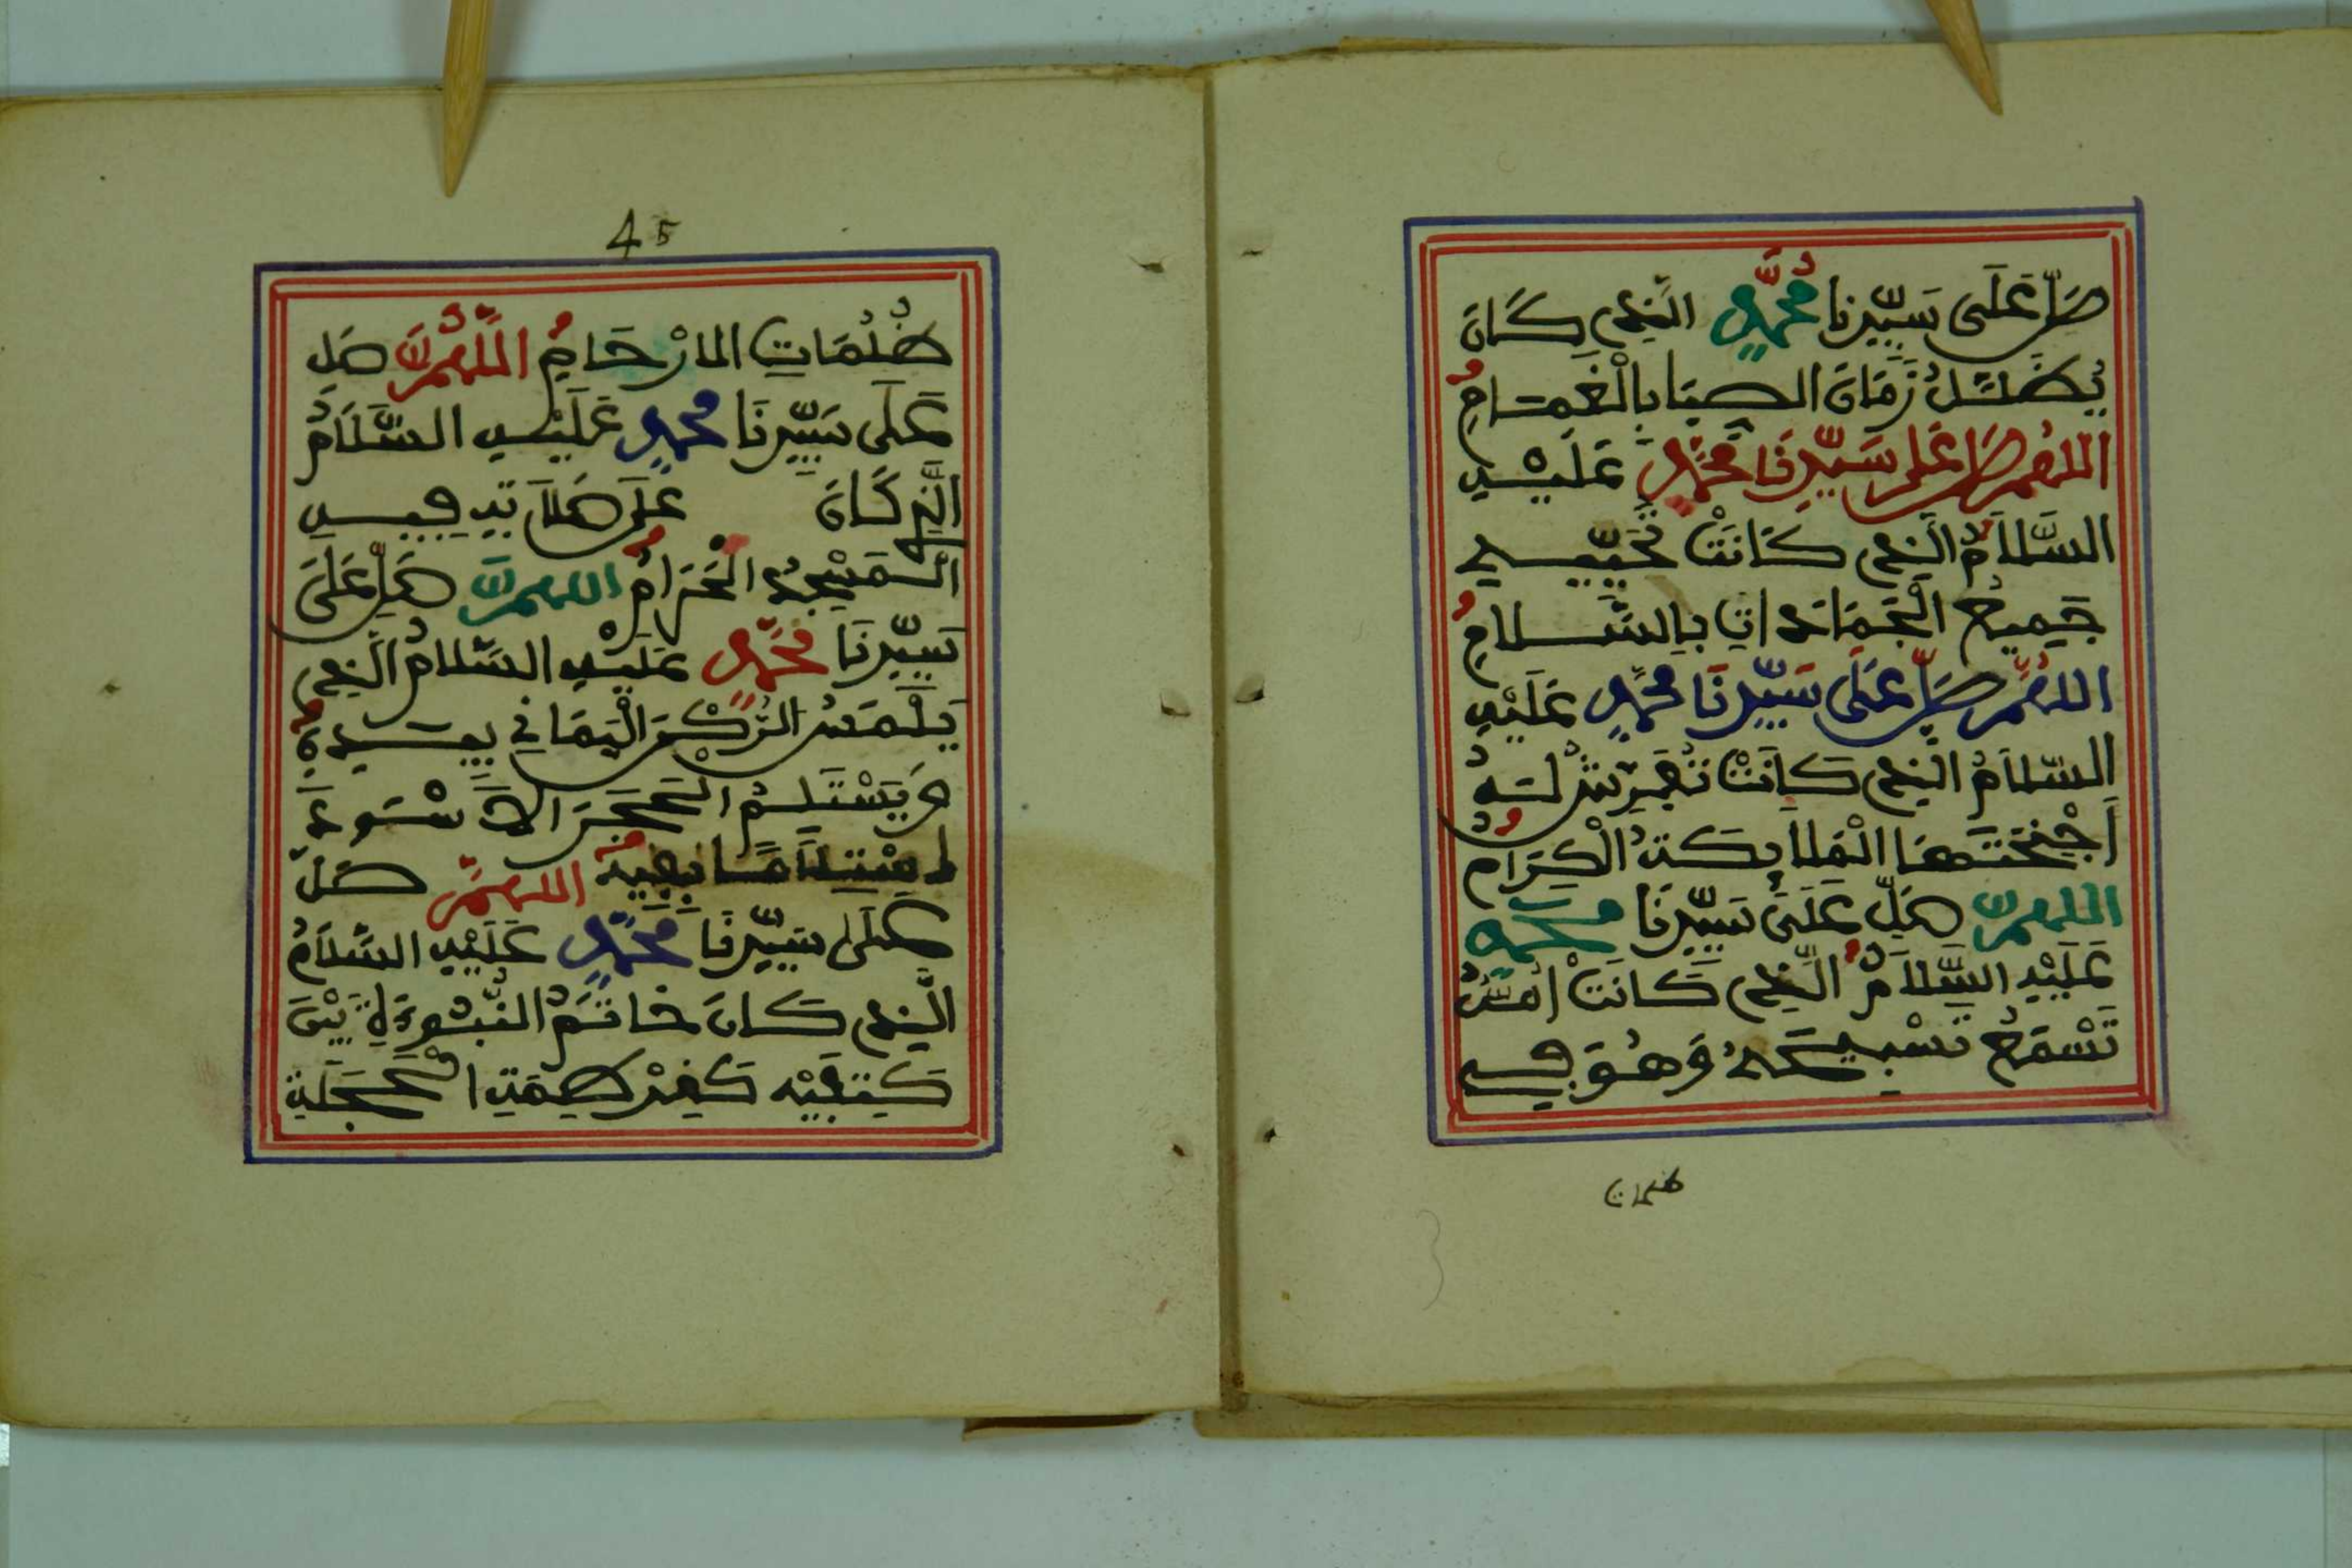 صَلِّ عَلَى سَيِّدِنَا مُحَمَّدٍ الَّذِي كَانَ
يُظَلَّلُ زَمَانَ الصِّبَا بِالْغَمَامِ
اللهُمَّ صَلِّ عَلَى سَيِّدِنَا مُحَمَّدٍ عَلَيْهِ
السَّلَامُ الَّذِي كَانَتْ تُحَيِّيهِ
جَمِيعُ الْجَمَادَاتِ بِالسَّلَامِ
اللهُمَّ صَلِّ عَلَى سَيِّدِنَا مُحَمَّدٍ عَلَيْهِ
السَّلَامُ الَّذِي كَانَتْ تُفْرِشُ لَهُ
أَجْنِحَتَهَا الْمَلَايِكَةُ الْكِرَامُ
اللهمَّ صَلِّ عَلَى سَيِّدِنَا مُحَمَّدٍ
عَلَيْهِ السَّلَامُ الَّذِي كَانَتْ أُمُّهُ
تَسْمَعُ تَسْبِيحَهُ وَهُوَ فِي
ظلمات
45
ظُلُمَاتِ الارْحَامِ اللَّهُمَّ صَلِ
عَلَى سَيِّدِنَا مُحَمَّدٍ عَلَيْهِ السَّلَامُ
الَّذِي كَانَ عَلَى صَلَاتِهِ فِيهِ
الْمَسْجِدُ الْحَرَامُ اللهمَّ صَلِّ عَلَى
سَيِّدِنَا مُحَمَّدٍ عَلَيْهِ السَّلَامُ الَّذِي
يَلْمَسُ الرُّكْنَ الْيَمَانِي بِيَدِهِ
وَيَسْتَلِمُ الْحَجَرَ الْأَسْوَدَ
اللهمَّ صَلِّ
عَلَى سَيِّدِنَا مُحَمَّدٍ عَلَيْهِ السَّلَامُ
الَّذِي كَانَ خَاتَمُ النُّبُوءَةِ بَيْنَ
كَتِفَيْهِ الْحَجَلَةِ